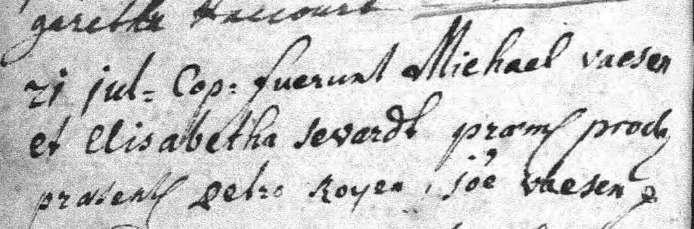 garetha Haccourt
21 jul= Cop: fuerunt Michael vaesen
et Elisabetha sevardt præm procl
præsent petro Royen, joe vaesen